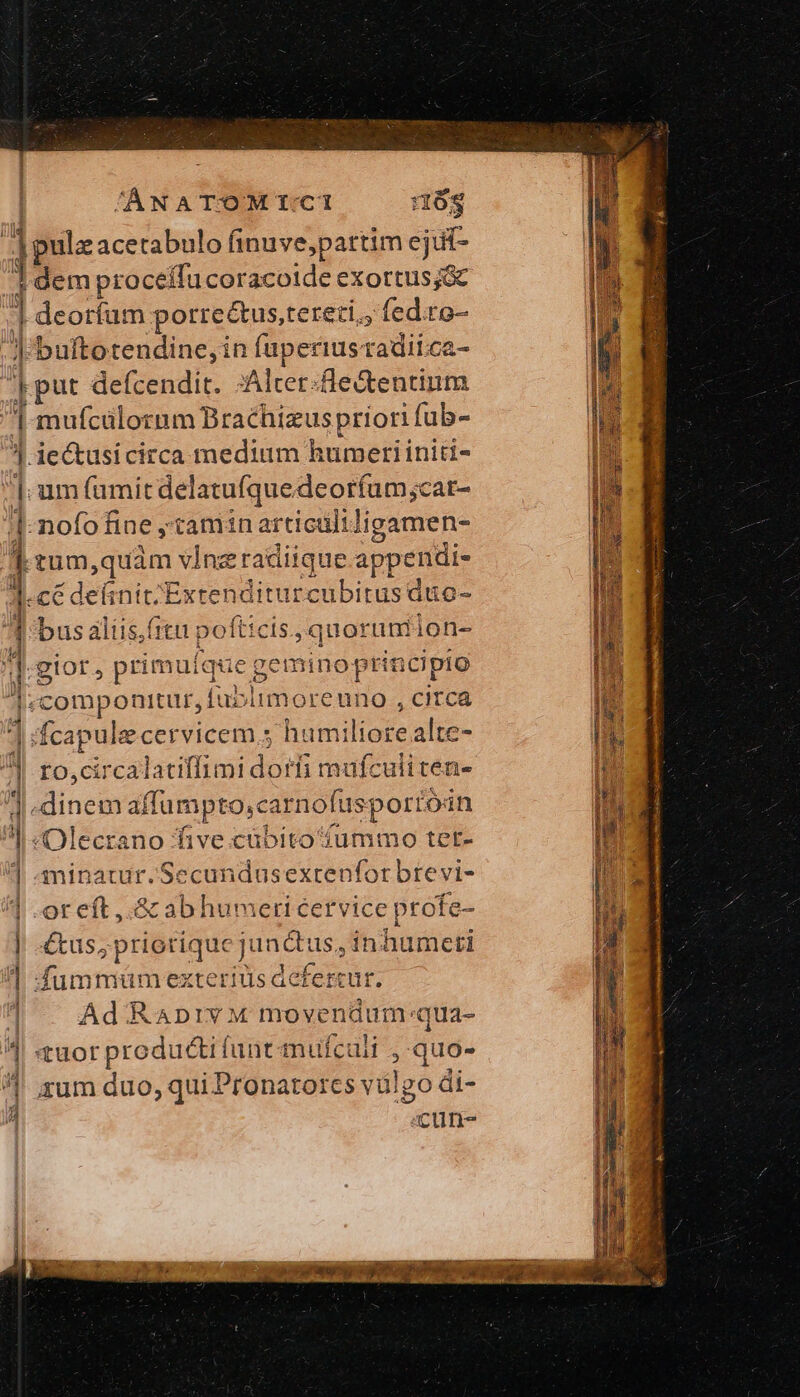 ANATOMICI 165
pulæ acetabulo sinuve, partim ejuſ-
dem proceſſu coracoide exortus, &
deorſum porrectus, tereti, ſed ro-
buſto tendine, in ſuperius radii ca-
put deſcendit. Alter flectentium
muſculorum Brachiæus priori ſub-
iectus circa medium humeri initi-
um ſumit delatuſque deorſum, car-
noſo fine, tamin articuli ligamen-
tum, quàm vlnæ radiique appendi-
cé deſinit. Extenditur cubitus duo-
bus aliis, ſitu poſticis, quorum lon-
gior, primuſque gemino principio
componitur, ſublimore uno, circa
ſcapulæ cervicem; humiliore alte-
ro, circa latiſſimi dorſi muſculi ten-
dinem aſſumpto, carnoſus porrò in
Olecrano ſive cubito ſummo ter-
minatur. Secundus extenſor brevi-
or eſt, & ab humeri cervice profe-
ctus, priorique junctus, in humeri
ſummum exteriùs defertur.
Ad RADIVM movendum qua-
tuor producti ſunt muſculi, quo-
rum duo, qui Pronatores vulgo di-
cun-